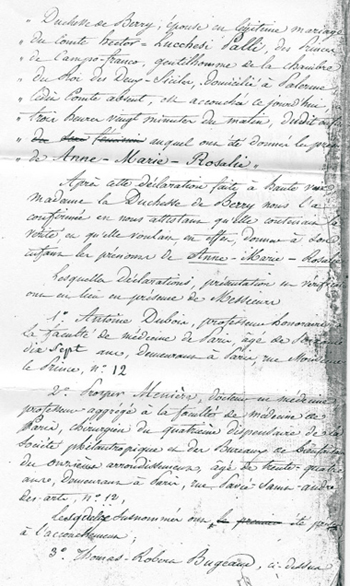 " Duchesse de Berry, épouse en légitime mariage
" du Comte Hector-Lucchesi Palli, des Princes
" de Campo-franco, gentilhomme de la chambre
" du Roi des Deux-Siciles, domicilié à Palerme
" ledit Comte absent, est accouchée ce jourd'hui, à
" trois heures vingt minutes du matin, dudit enfant
" du sexe féminin auquel ont été donnés les prénoms
" de Anne-Marie-Rosalie "
Après cette déclaration faite à haute voix
Madame la Duchesse de Berry nous l'a
confirmée en nous attestant qu'elle contenait la
vérité, et qu'elle voulait, en effet, donner à son
enfant les prénoms de Anne-Marie-Rosalie
lesquelles déclarations, présentation et vérification
ont eu lieu en présence de Messieurs
1° Antoine Dubois, professeur honoraire à
la faculté de médecine de Paris, âgé de
dix sept ans, demeurant à Paris, rue Monsieur
le Prince, n° 12
2° Prosper Menière, docteur en médecine
professeur aggrégé à la faculté de médecine de
Paris, chirurgien du quatrième dispensaire de la
Société philantropique et des Bureaux de bienfaisance
du onzième arrondissement, âgé de trente-quatre
ans, demeurant à Paris, rue Pavée-Saint-André
des-arts, n° 12,
lesquels susnommés ont été
à l'accouchement ;
3° Thomas-Robert Bugeaud, ci-dessus